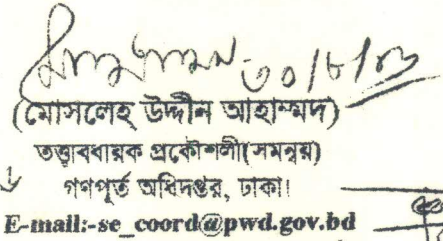 ৩০/৮/১৩
(মোসলেহ্ উদ্দীন আহাম্মদ)
তত্ত্বাবধায়ক প্রকৌশলী(সমন্বয়)
গণপূর্ত অধিদপ্তর, ঢাকা।
E-mail:-se_coord@pwd.gov.bd